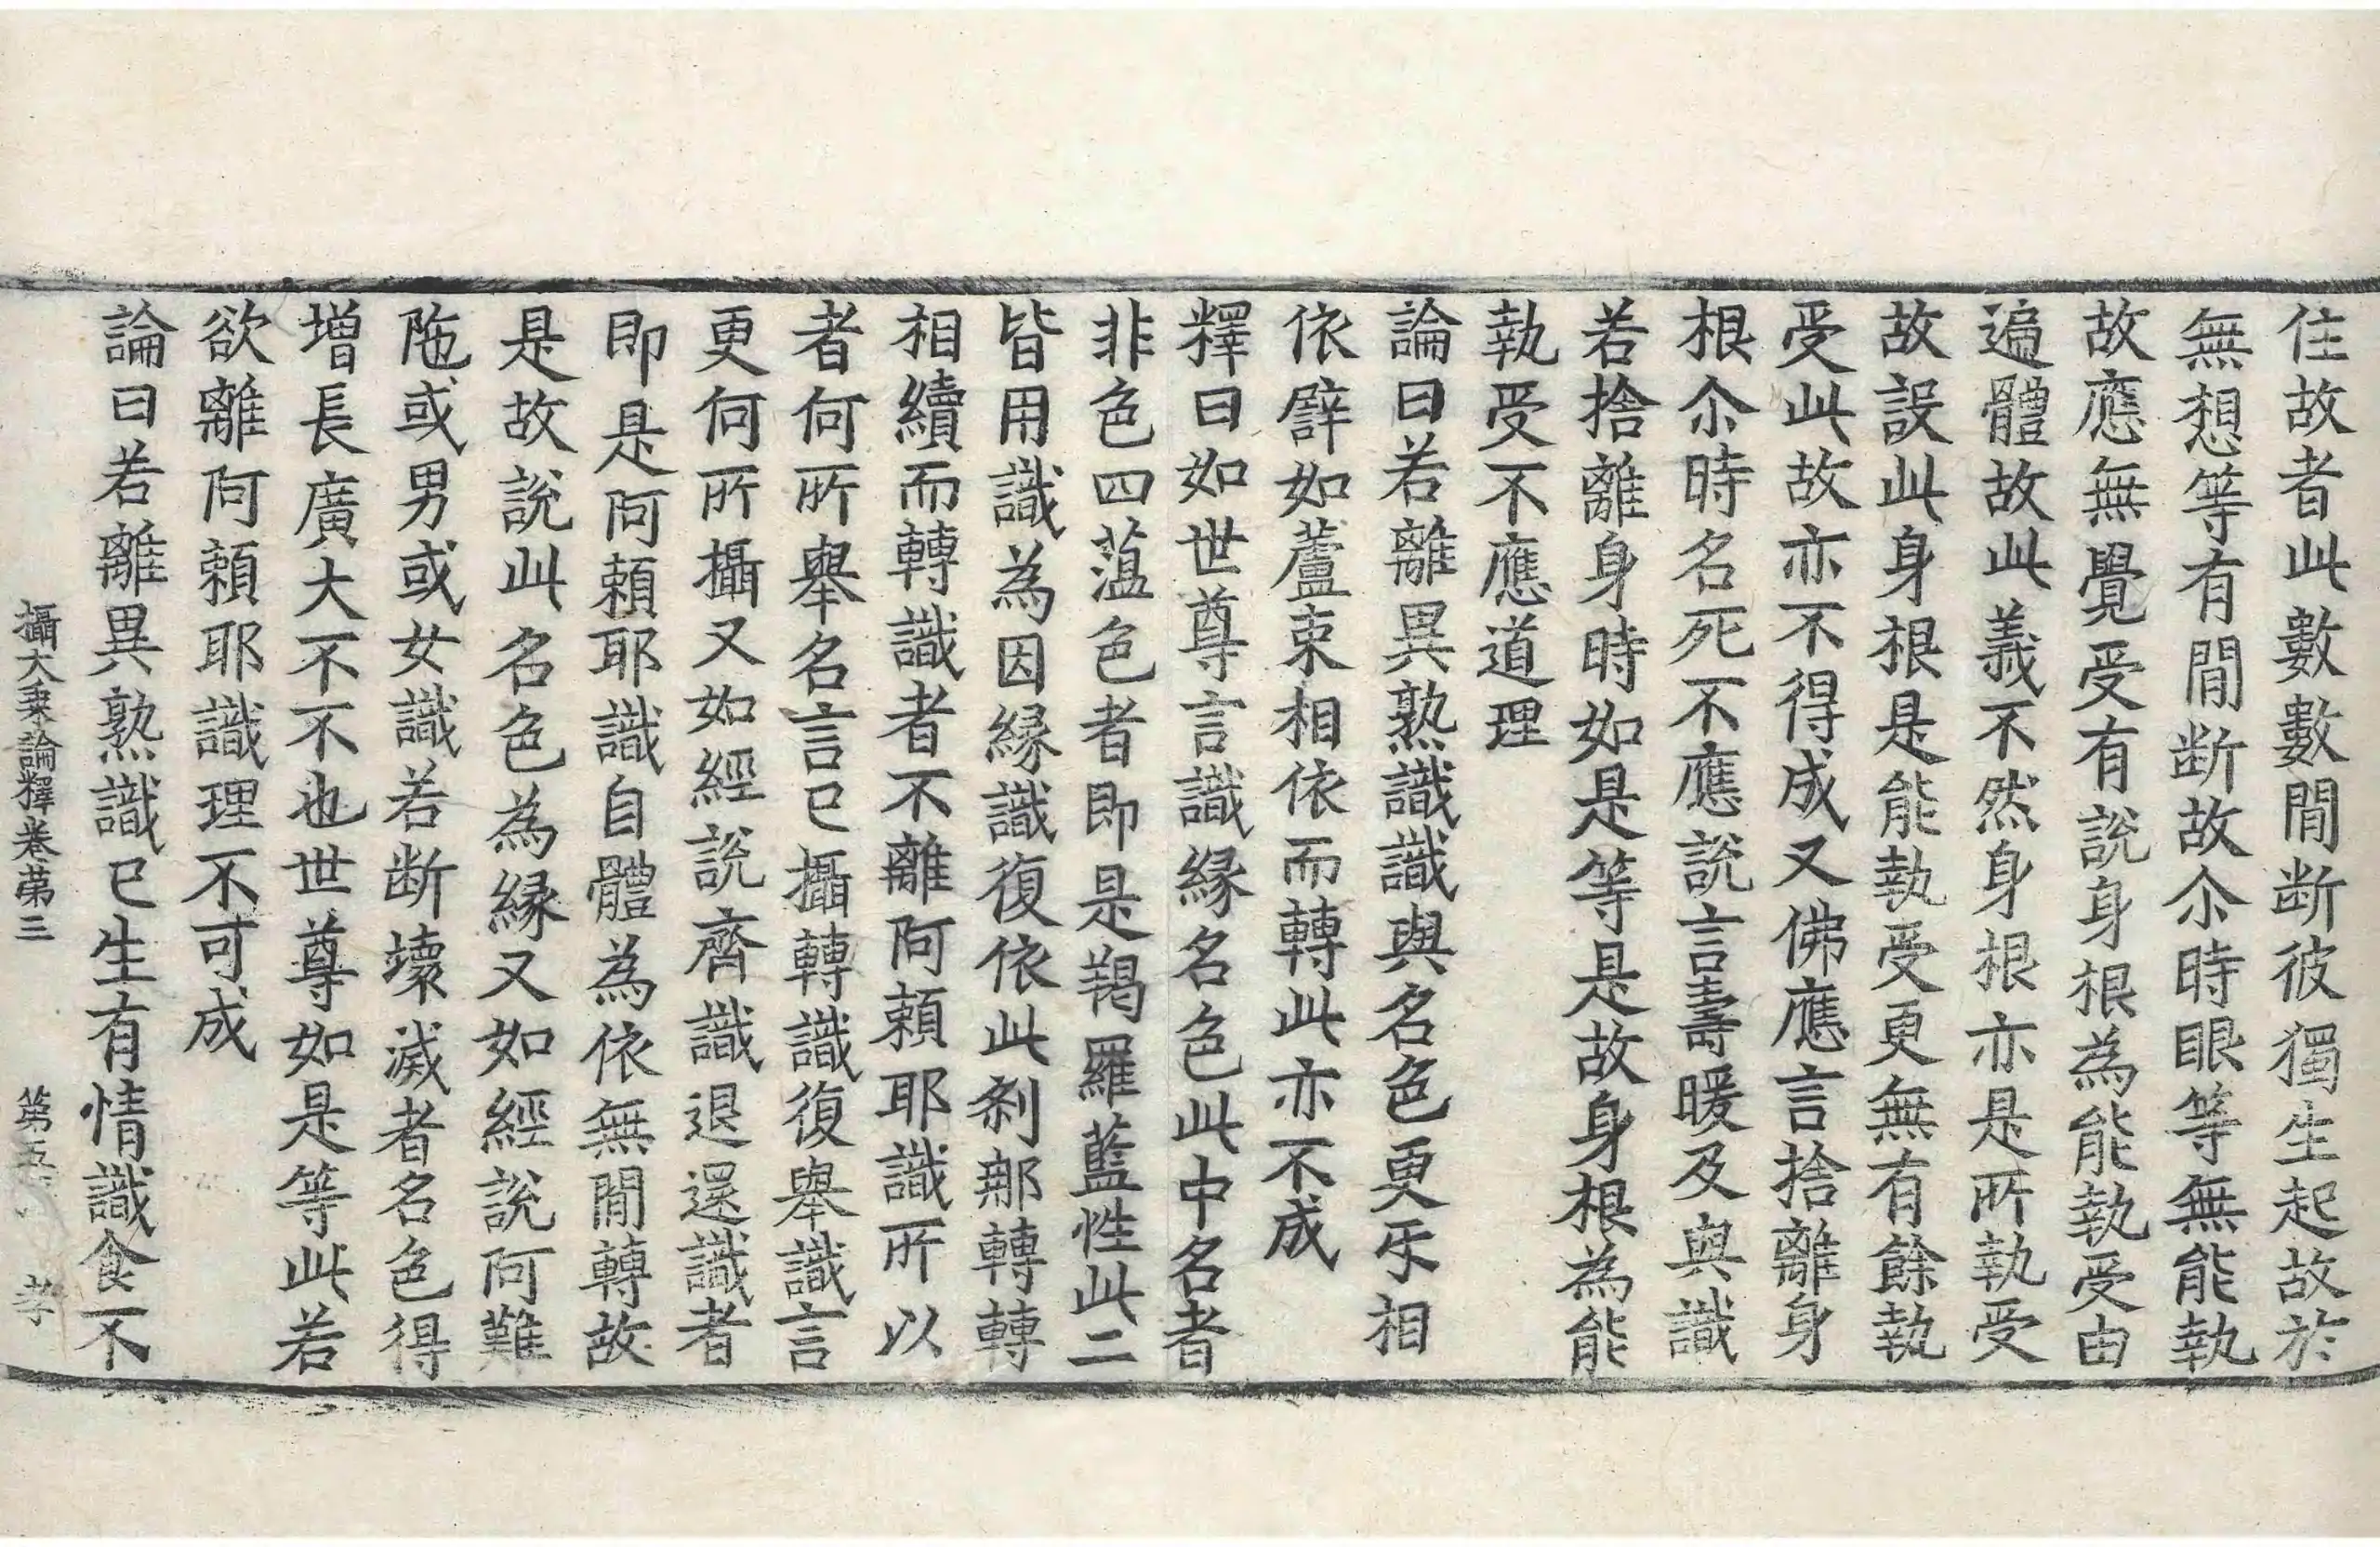 住故者此數數間断彼獨生起故於
無想等有間断故尒時眼等無能執
故應無覺受有說身根為能執受由
遍體故此義不然身根亦是所執受
故設此身根是能執受更無有餘執
受此故亦不得成又佛應言捨離身
根尒時名死不應說言壽暖及與識
若捨離身時如是等是故身根為能
執受不應道理
論曰若離異熟識識與名色更㸦相
依譬如蘆束相依而轉此亦不成
釋曰如世尊言識縁名色此中名者
非色四薀色者即是羯羅藍性此二
皆用識為因縁識復依此刹那轉轉
相續而轉識者不離阿頼耶識所以
者何所舉名言已攝轉識復舉識言
更何所攝又如經說齊識退還識者
即是阿頼耶識自體為依無間轉故
是故說此名色為縁又如經說阿難
陁或男或女識若断壞滅者名色得
増長廣大不不也世尊如是等此若
欲離阿頼耶識理不可成
論曰若離異熟識已生有情識食不
攝大乗論釋卷第三　第五　孝